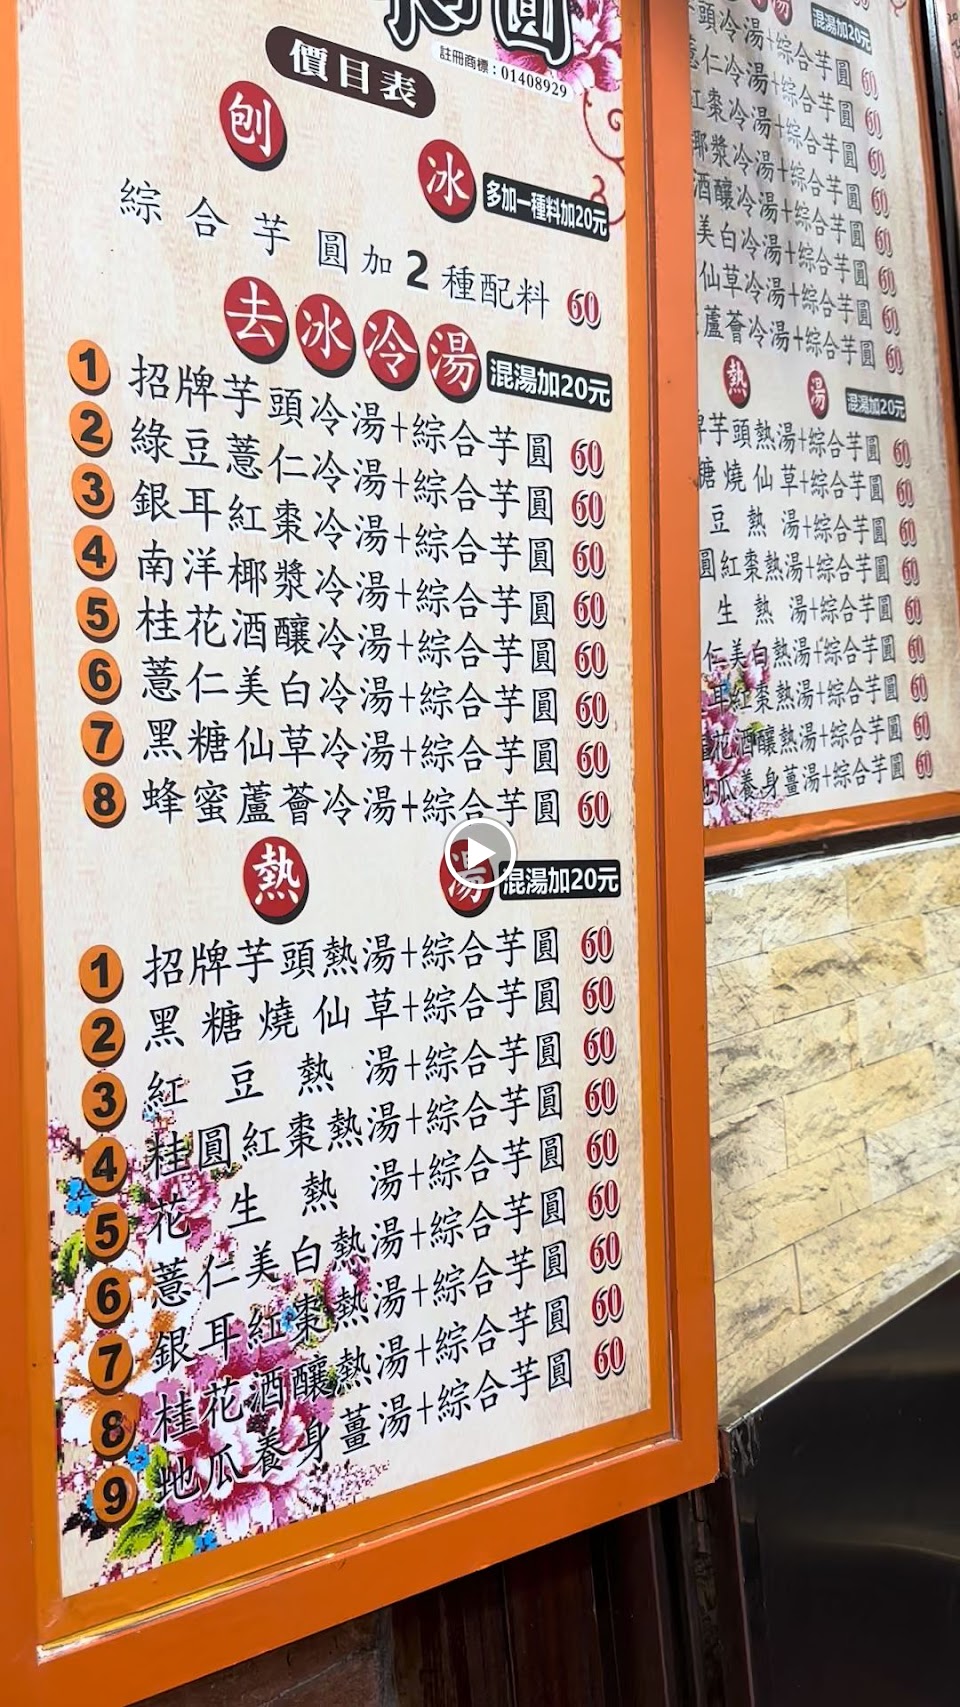 圓
註冊商標：01408929
價目表
刨冰 多加一種料加20元
綜合芋圓加2種配料 60
去冰冷湯 混湯加20元
1 招牌芋頭冷湯+綜合芋圓 60
2 綠豆薏仁冷湯+綜合芋圓 60
3 銀耳紅棗冷湯+綜合芋圓 60
4 南洋椰漿冷湯+綜合芋圓 60
5 桂花酒釀冷湯+綜合芋圓 60
6 薏仁美白冷湯+綜合芋圓 60
7 黑糖仙草冷湯+綜合芋圓 60
8 蜂蜜蘆薈冷湯+綜合芋圓 60
熱湯 混湯加20元
1 招牌芋頭熱湯+綜合芋圓 60
2 黑糖燒仙草+綜合芋圓 60
3 紅豆熱湯+綜合芋圓 60
4 桂圓紅棗熱湯+綜合芋圓 60
5 花生熱湯+綜合芋圓 60
6 薏仁美白熱湯+綜合芋圓 60
7 銀耳紅棗熱湯+綜合芋圓 60
8 桂花酒釀熱湯+綜合芋圓 60
9 地瓜養身薑湯+綜合芋圓 60
混湯加20元
頭冷湯+綜合芋圓 60
薏仁冷湯+綜合芋圓 60
紅棗冷湯+綜合芋圓 60
椰漿冷湯+綜合芋圓 60
酒釀冷湯+綜合芋圓 60
美白冷湯+綜合芋圓 60
仙草冷湯+綜合芋圓 60
蘆薈冷湯+綜合芋圓 60
熱湯 混湯加20元
牌芋頭熱湯+綜合芋圓 60
糖燒仙草+綜合芋圓 60
豆熱湯+綜合芋圓 60
圓紅棗熱湯+綜合芋圓 60
生熱湯+綜合芋圓 60
仁美白熱湯+綜合芋圓 60
耳紅棗熱湯+綜合芋圓 60
花酒釀熱湯+綜合芋圓 60
地瓜養身薑湯+綜合芋圓 60